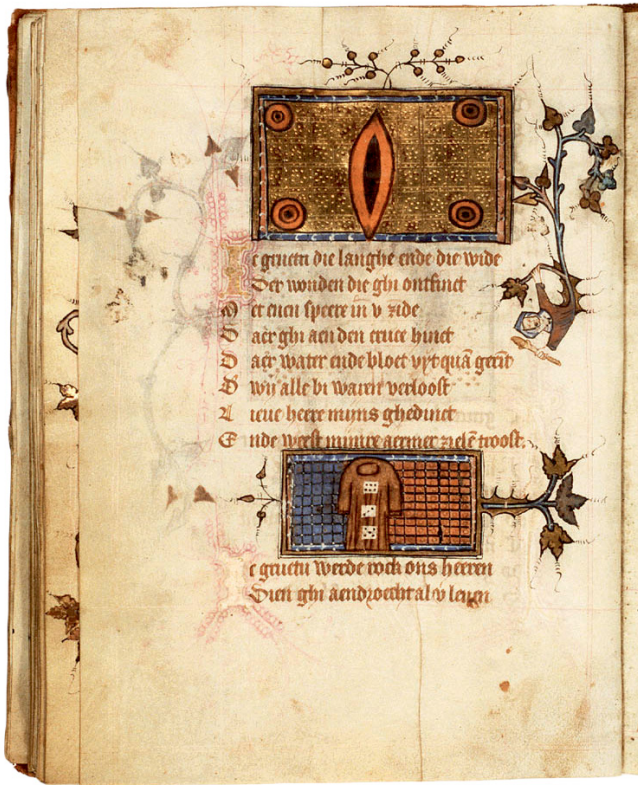 Ic gruetu die langhe ende die wide
Der wonden die ghi ontfinct
Met enen speere in v zide
Daer ghi aen den cruce hinct
Daer water ende bloet vyt quā gerīt
Dwii alle bi waren verloost
Lieue heere myns ghedinct
Ende weest mynre aermer zielē troost.
Ic gruetu weerde rock ons heeren
Dien ghi aendroecht al v leuen